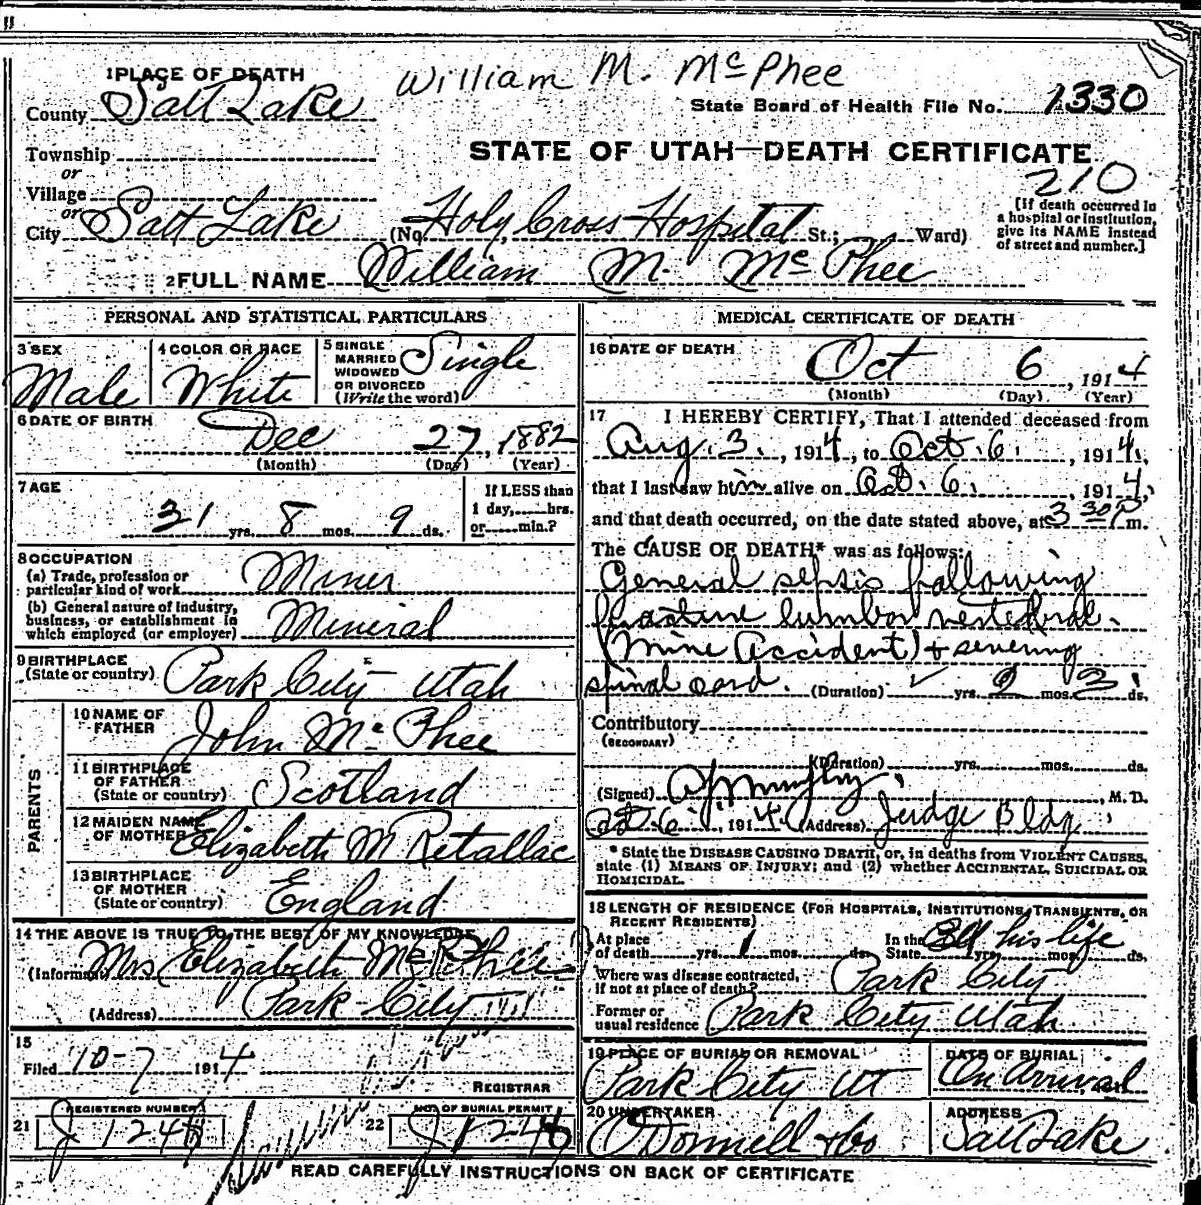 William M. McPhee
1 PLACE OF DEATH
County Salt Lake
State Board of Health File No. 1330
Township
or
Village
or
City Salt Lake
STATE OF UTAH—DEATH CERTIFICATE
210
(No. Holy Cross Hospital St.; Ward)
[If death occurred in
a hospital or institution,
give its NAME instead
of street and number.]
2 FULL NAME William M. McPhee
PERSONAL AND STATISTICAL PARTICULARS
3 SEX
Male
4 COLOR OR RACE
White
5 SINGLE
MARRIED
WIDOWED
OR DIVORCED
(Write the word)
Single
6 DATE OF BIRTH
Dec 27, 1882
(Month) (Day) (Year)
7 AGE
31 yrs. 8 mos. 9 ds.
If LESS than
1 day, hrs.
or min.?
8 OCCUPATION
(a) Trade, profession or
particular kind of work Miner
(b) General nature of industry,
business, or establishment in
which employed (or employer) Mineral
9 BIRTHPLACE
(State or country) Park City Utah
PARENTS
10 NAME OF
FATHER John McPhee
11 BIRTHPLACE
OF FATHER
(State or country) Scotland
12 MAIDEN NAME
OF MOTHER Elizabeth M Retallac
13 BIRTHPLACE
OF MOTHER
(State or country) England
14 THE ABOVE IS TRUE TO THE BEST OF MY KNOWLEDGE
(Informant) Mrs Elizabeth McPhee
(Address) Park City
15
Filed 10-7 1914
REGISTRAR
21 REGISTERED NUMBER
22 NO. OF BURIAL PERMIT
MEDICAL CERTIFICATE OF DEATH
16 DATE OF DEATH
Oct 6, 1914
(Month) (Day) (Year)
17 I HEREBY CERTIFY, That I attended deceased from
Aug. 3., 1914, to Oct. 6., 1914,
that I last saw him alive on Oct. 6., 1914,
and that death occurred, on the date stated above, at 3 30 P m.
The CAUSE OF DEATH* was as follows:
General sepsis following
fracture lumbar vertebral.
(Mine Accident) & severing
spinal cord. (Duration) yrs. 2 mos. 3 ds.
Contributory
(SECONDARY)
(Duration) yrs. mos. ds.
(Signed) M. D.
Oct. 6, 1914 (Address) Judge Bldg
* State the DISEASE CAUSING DEATH, or, in deaths from VIOLENT CAUSES,
state (1) MEANS OF INJURY; and (2) whether ACCIDENTAL, SUICIDAL OR
HOMICIDAL.
18 LENGTH OF RESIDENCE (FOR HOSPITALS, INSTITUTIONS, TRANSIENTS, OR
RECENT RESIDENTS)
At place
of death yrs. 1 mos. ds.
In the
State All his life yrs. mos. ds.
Where was disease contracted,
if not at place of death? Park City
Former or
usual residence Park City Utah
19 PLACE OF BURIAL OR REMOVAL
Park City Ut
DATE OF BURIAL
On Arrival
20 UNDERTAKER
O'Donnell & Co
ADDRESS
Salt Lake
READ CAREFULLY INSTRUCTIONS ON BACK OF CERTIFICATE